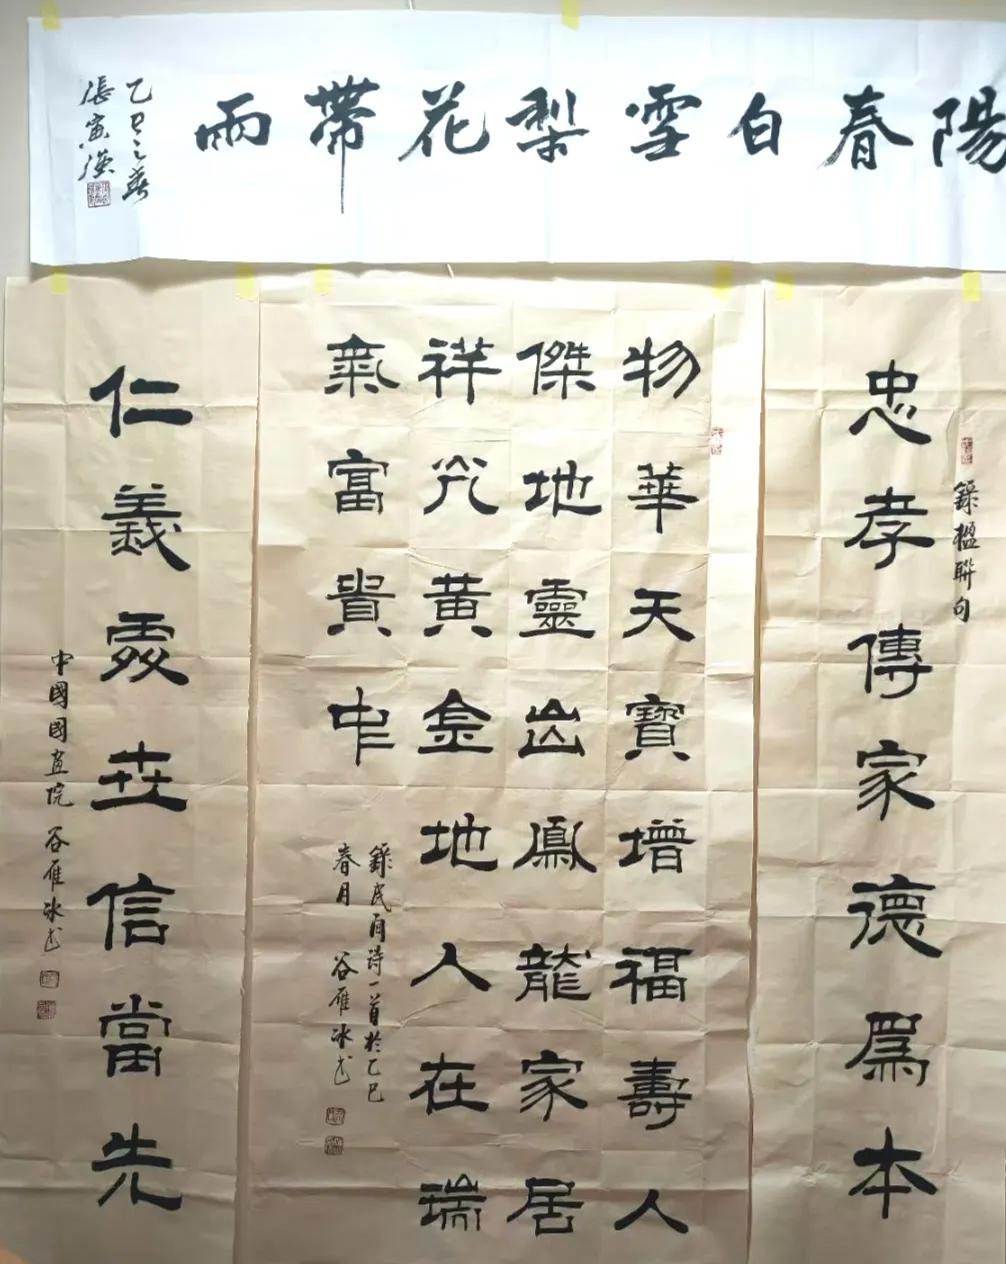 陽春白雪梨花帶雨
乙巳之春
張寅
錄楹聯句
忠孝傳家德爲本
物華天寶增福壽人
傑地靈出鳳龍家居
祥光黃金地人在瑞
氣富貴中
錄民间詩一首於乙巳
春月 谷雁冰书
仁義處世信當先
中國國画院 谷雁冰书